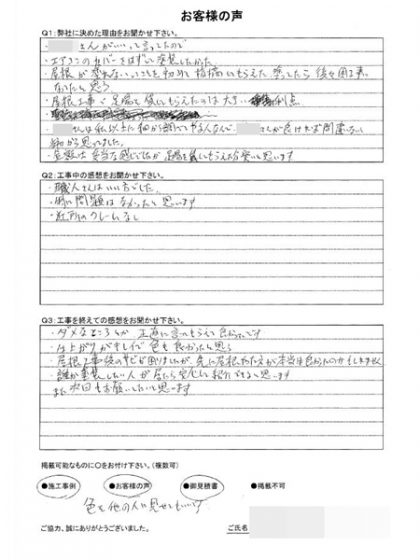 お客様の声
Q1:弊社に決めた理由をお聞かせ下さい。
・ さんがいいって言ってたので
・エアコンのカバーをはずして塗装したかった。
・屋根が塗れないということを初めて指摘してもらえた 塗ってたら後々困る事に
なったと思う
・屋根工事で足場を気にしてもらえたのは大きい 利点
・ さんは私以上に細かい所でやる人なんで、 さんが良ければ間違ない
と思ってました。
Q2:工事中の感想をお聞かせ下さい。
・職人さんはいい方でした。
・特に問題はなかったと思います
・近所のクレームなし
Q3:工事を終えての感想をお聞かせ下さい。
・ダメなところも 正直に言ってもらえて良かったです
・仕上がりがキレイで色も良かったと思う
・屋根工事後の が困りましたが、先に屋根 方が本当は良かったのかもしれません
・誰か塗装したい人が居たら安心して紹介できると思います
また次回もお願いしたいと思います
掲載可能なものに○をお付け下さい。(複数可)
●施工事例 ●お客様の声 ●御見積書 ●掲載不可
色を他の人に見せてもいい
ご協力、誠にありがとうございました。 ご氏名